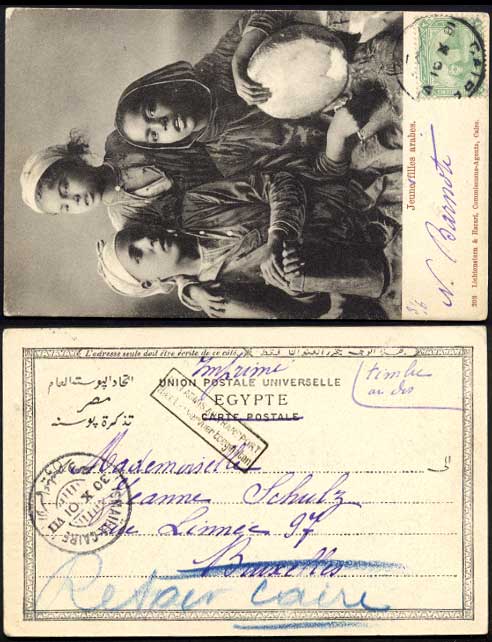 Jeunes filles arabes.
N. Barnoti
308 Lichtenstern & Harari, Commissions-Agents, Cairo.
L'adresse seule doit être écrite de ce côté
Imprimé
UNION POSTALE UNIVERSELLE
EGYPTE
CARTE POSTALE
اتحاد البوستة العام
مصر
تذكرة بوسته
timbre
au dos
الى
Mademoiselle
Jeanne Schulz
Rue Linnée 97
Bruxelles
Retour Caire
CAIRE
30 X 01
VII